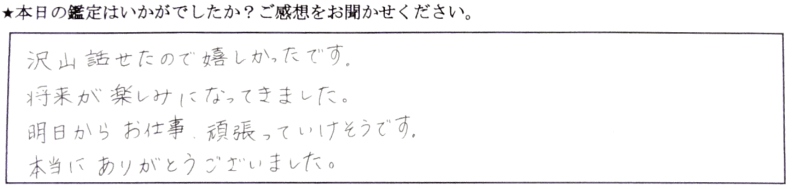 ★本日の鑑定はいかがでしたか？ご感想をお聞かせください。
沢山話せたので嬉しかったです。
将来が楽しみになってきました。
明日からお仕事、頑張っていけそうです。
本当にありがとうございました。